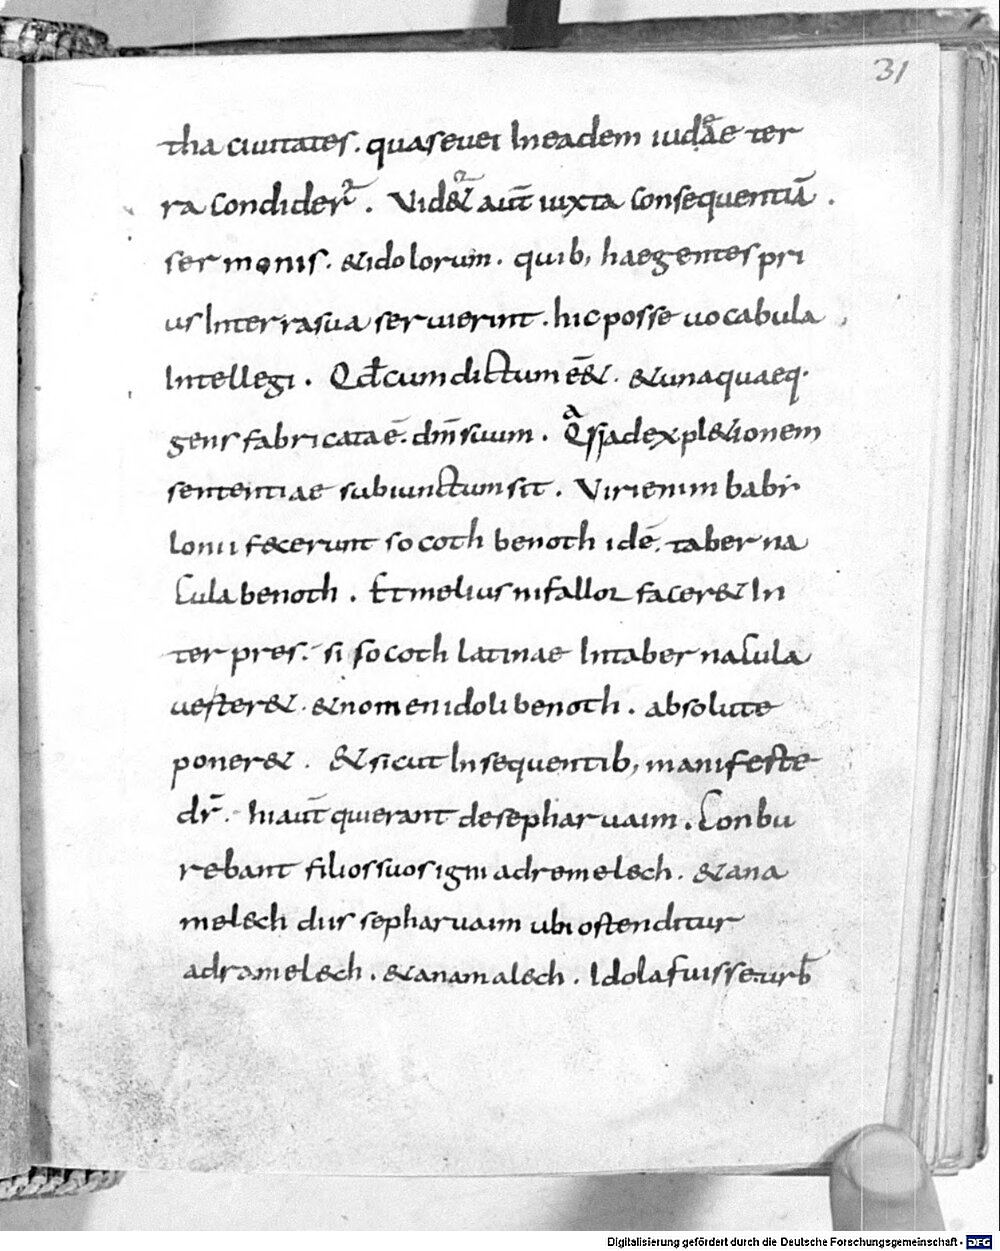 31
tha ciuitates. quas euei In eadem iudęae ter
ra condider̃. Vid&ur aut̄ iuxta consequentiā.
sermonis. & idolorum. quib; hae gentes pri
us In terra sua seruierint. hic posse uocabula
Intellegi. Qd̄ cum dictum ē &. & unaquaeq·
gens fabricata ē. dm̄ suum. Qasi ad expl&ionem
sententiae subiunctum sit. Viri enim babi
lonii fecerunt socoth benoth id ē. taberna
cula benoth. Et melius ni fallor facer& In
terpres. si socoth latinae In tabernacula
uerter&. & nomen idoli benoth. absolute
poner&. & sicut In sequentib; manifeste
dr̄. hi aut̄ qui erant de sepharuaim. Conbu
rebant filios suos igni adremelech. & ana
melech diis sepharuaim ubi ostenditur
adramelech. & anamalech. Idola fuisse. urb̄
Digitalisierung gefördert durch die Deutsche Forschungsgemeinschaft - DFG